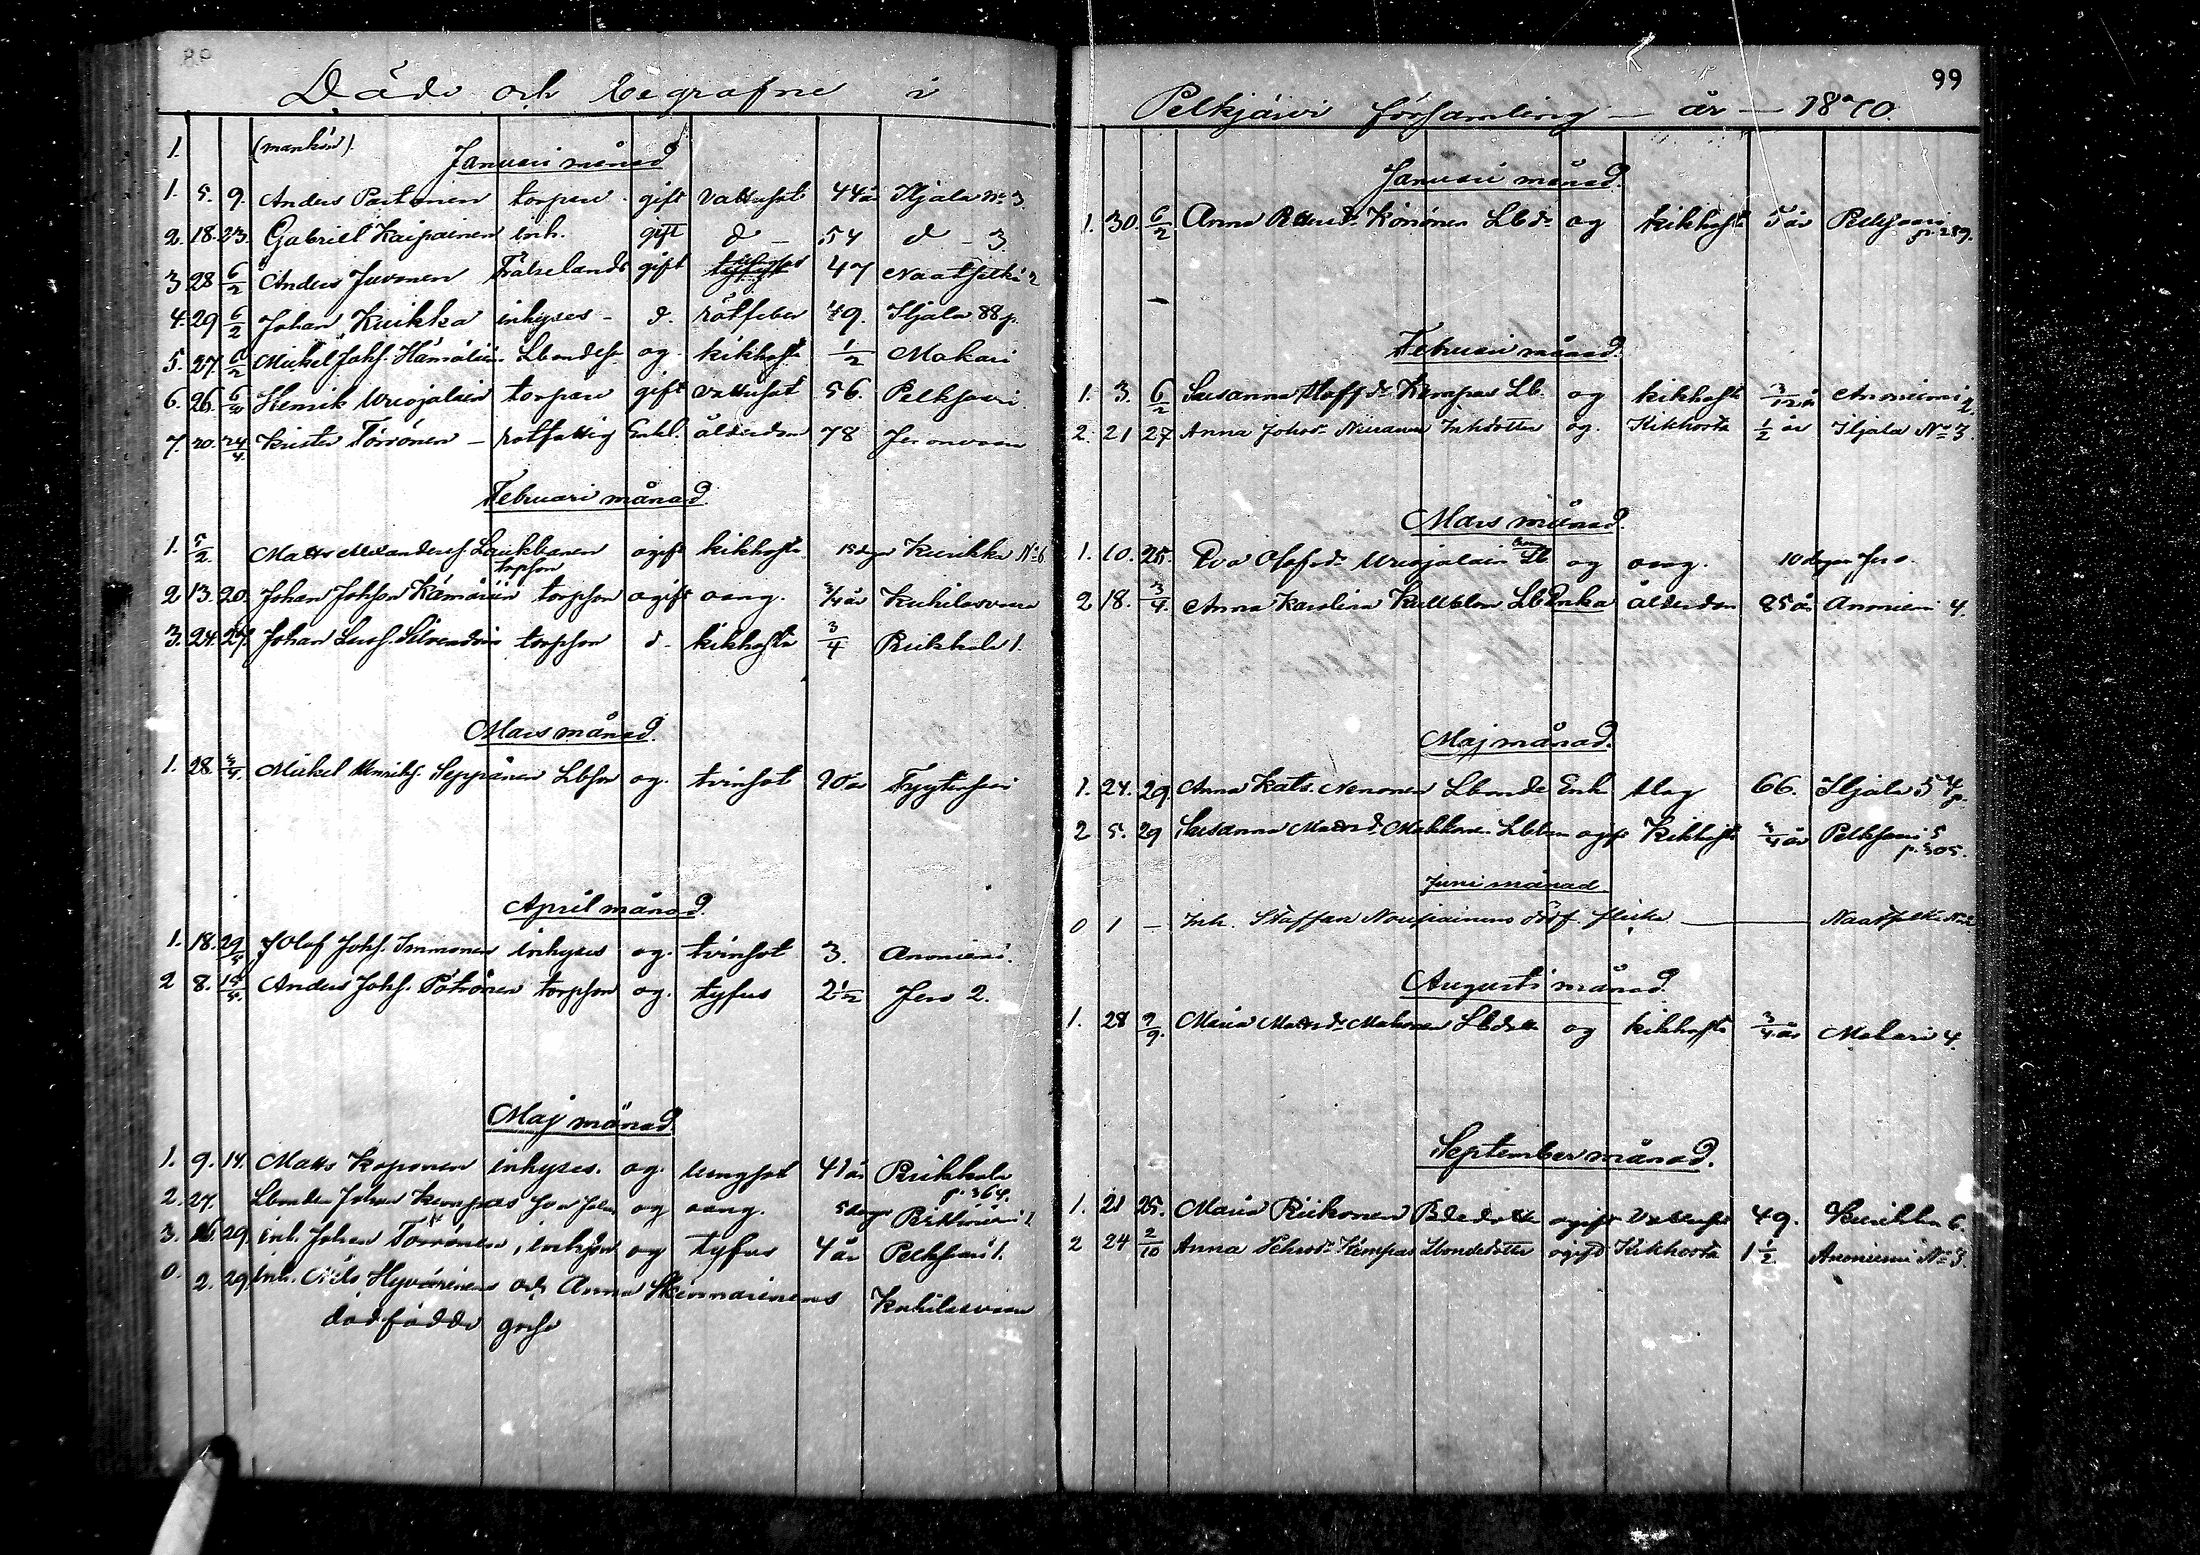 Döde och begrafne i
1. (mankön).
Januari månad
1. 5. 9. Anders Partonen torpare gift vattusot 44 år Iljala No 3.
2. 18. 23. Gabriel Kaipainen inh. gift d - 54 d - 3
3 28 6/2 Anders Juvonen Frälselands gift 47 Naatselkä 2
4. 29 6/2 Johan Kuikka inhyses - d. rötfeber 49. Iljala 88 p.
5. 27 6/2 Mickel Johs. Hämäläin. Lbondes. og. kikhosta 1/2 Makari
6. 26. Henrik Ursojalain torpare gift vattusot 56. Pelkjärvi
7. 20. Krister Törrönen - rotfattig Enkl. ålderdom 78
Februari månad.
1. 5/2. Matts Alexandersf. Laukkanen ogift kikhosta Kuikka No 6
torpson
2 13. 20. Johan Johson Kämäräin torpson ogift oang. 3/4 år Kuhilasvaara
3. 24. 27. Johan torpson d. kikhosta 3/4 Riikkola 1.
Mars månad.
1. 28 3/4. Mickel Henriks. Seppänen Lbson og. tvinsot
April månad.
1. 18. 29 Olof Johs. Immonen inhyses og. tvinsot 3. Anoniemi.
2 8. 15 Anders Johs. Pötrönen torpson og. tyfus 2 1/2 Jero 2.
Maj månad
1. 9. 14. Matts Koponen inhyses. og. lungsot 41 år Riikkola
p. 364.
2. 27. Lbonden Johan Kempas son og oang. 5 dagar
3. 16. 29. inh. Johan Törrönen, inhson og tyfus 4 år Pelkjärvi 1.
0. 2. 29 Inh. Nils Hyvärinens och Anna Kuhilasvaara
dödfödde gosse
99
Pelkjärvi församling — år — 1870.
Januari månad.
1. 30. 6/2 Anna Könönen Lbdr og kikhosta 5 år Pelkjärvi
p. 289.
Februari månad.
1. 3. 6/2 Susanna Kempas Lb. og kikhosta 3/12 år Anoniemi 2.
2. 21 27 Anna Johsdr Inhdotter og. Kikhosta 1/2 år Iljala No 3.
Mars månad.
1. 10. 25. Eva Olofsdr Ursojalain og oang. 10 dagar Jero.
2 18. 3/4. Anna Karolina Enka ålderdom 85 år Anoniemi 4.
Maj månad.
1. 24. 29. Anna Kats. Nenonen Lbonde Enk slag 66. Iljala
2 5. 29 Susanna Mattsd. Makkonen ogift Kikhosta 3/4 år Pelkjärvi 5
p. 305.
Juni månad
0 1 — Inh. Staffan Nousiainens döf. flicka — Naatselkä No 2
Augusti månad.
1. 28 9/9. Maria Mattsdr Makonen Lbdott og kikhosta 3/4 år Makari 4.
September månad.
1. 21 25. Maria Riikonen ogift Vattusot 49. Kuikka 6.
2 24 2/10 Anna Kempas Lbondedotter ogift Kikhosta 1 1/2. Anoniemi No 3.